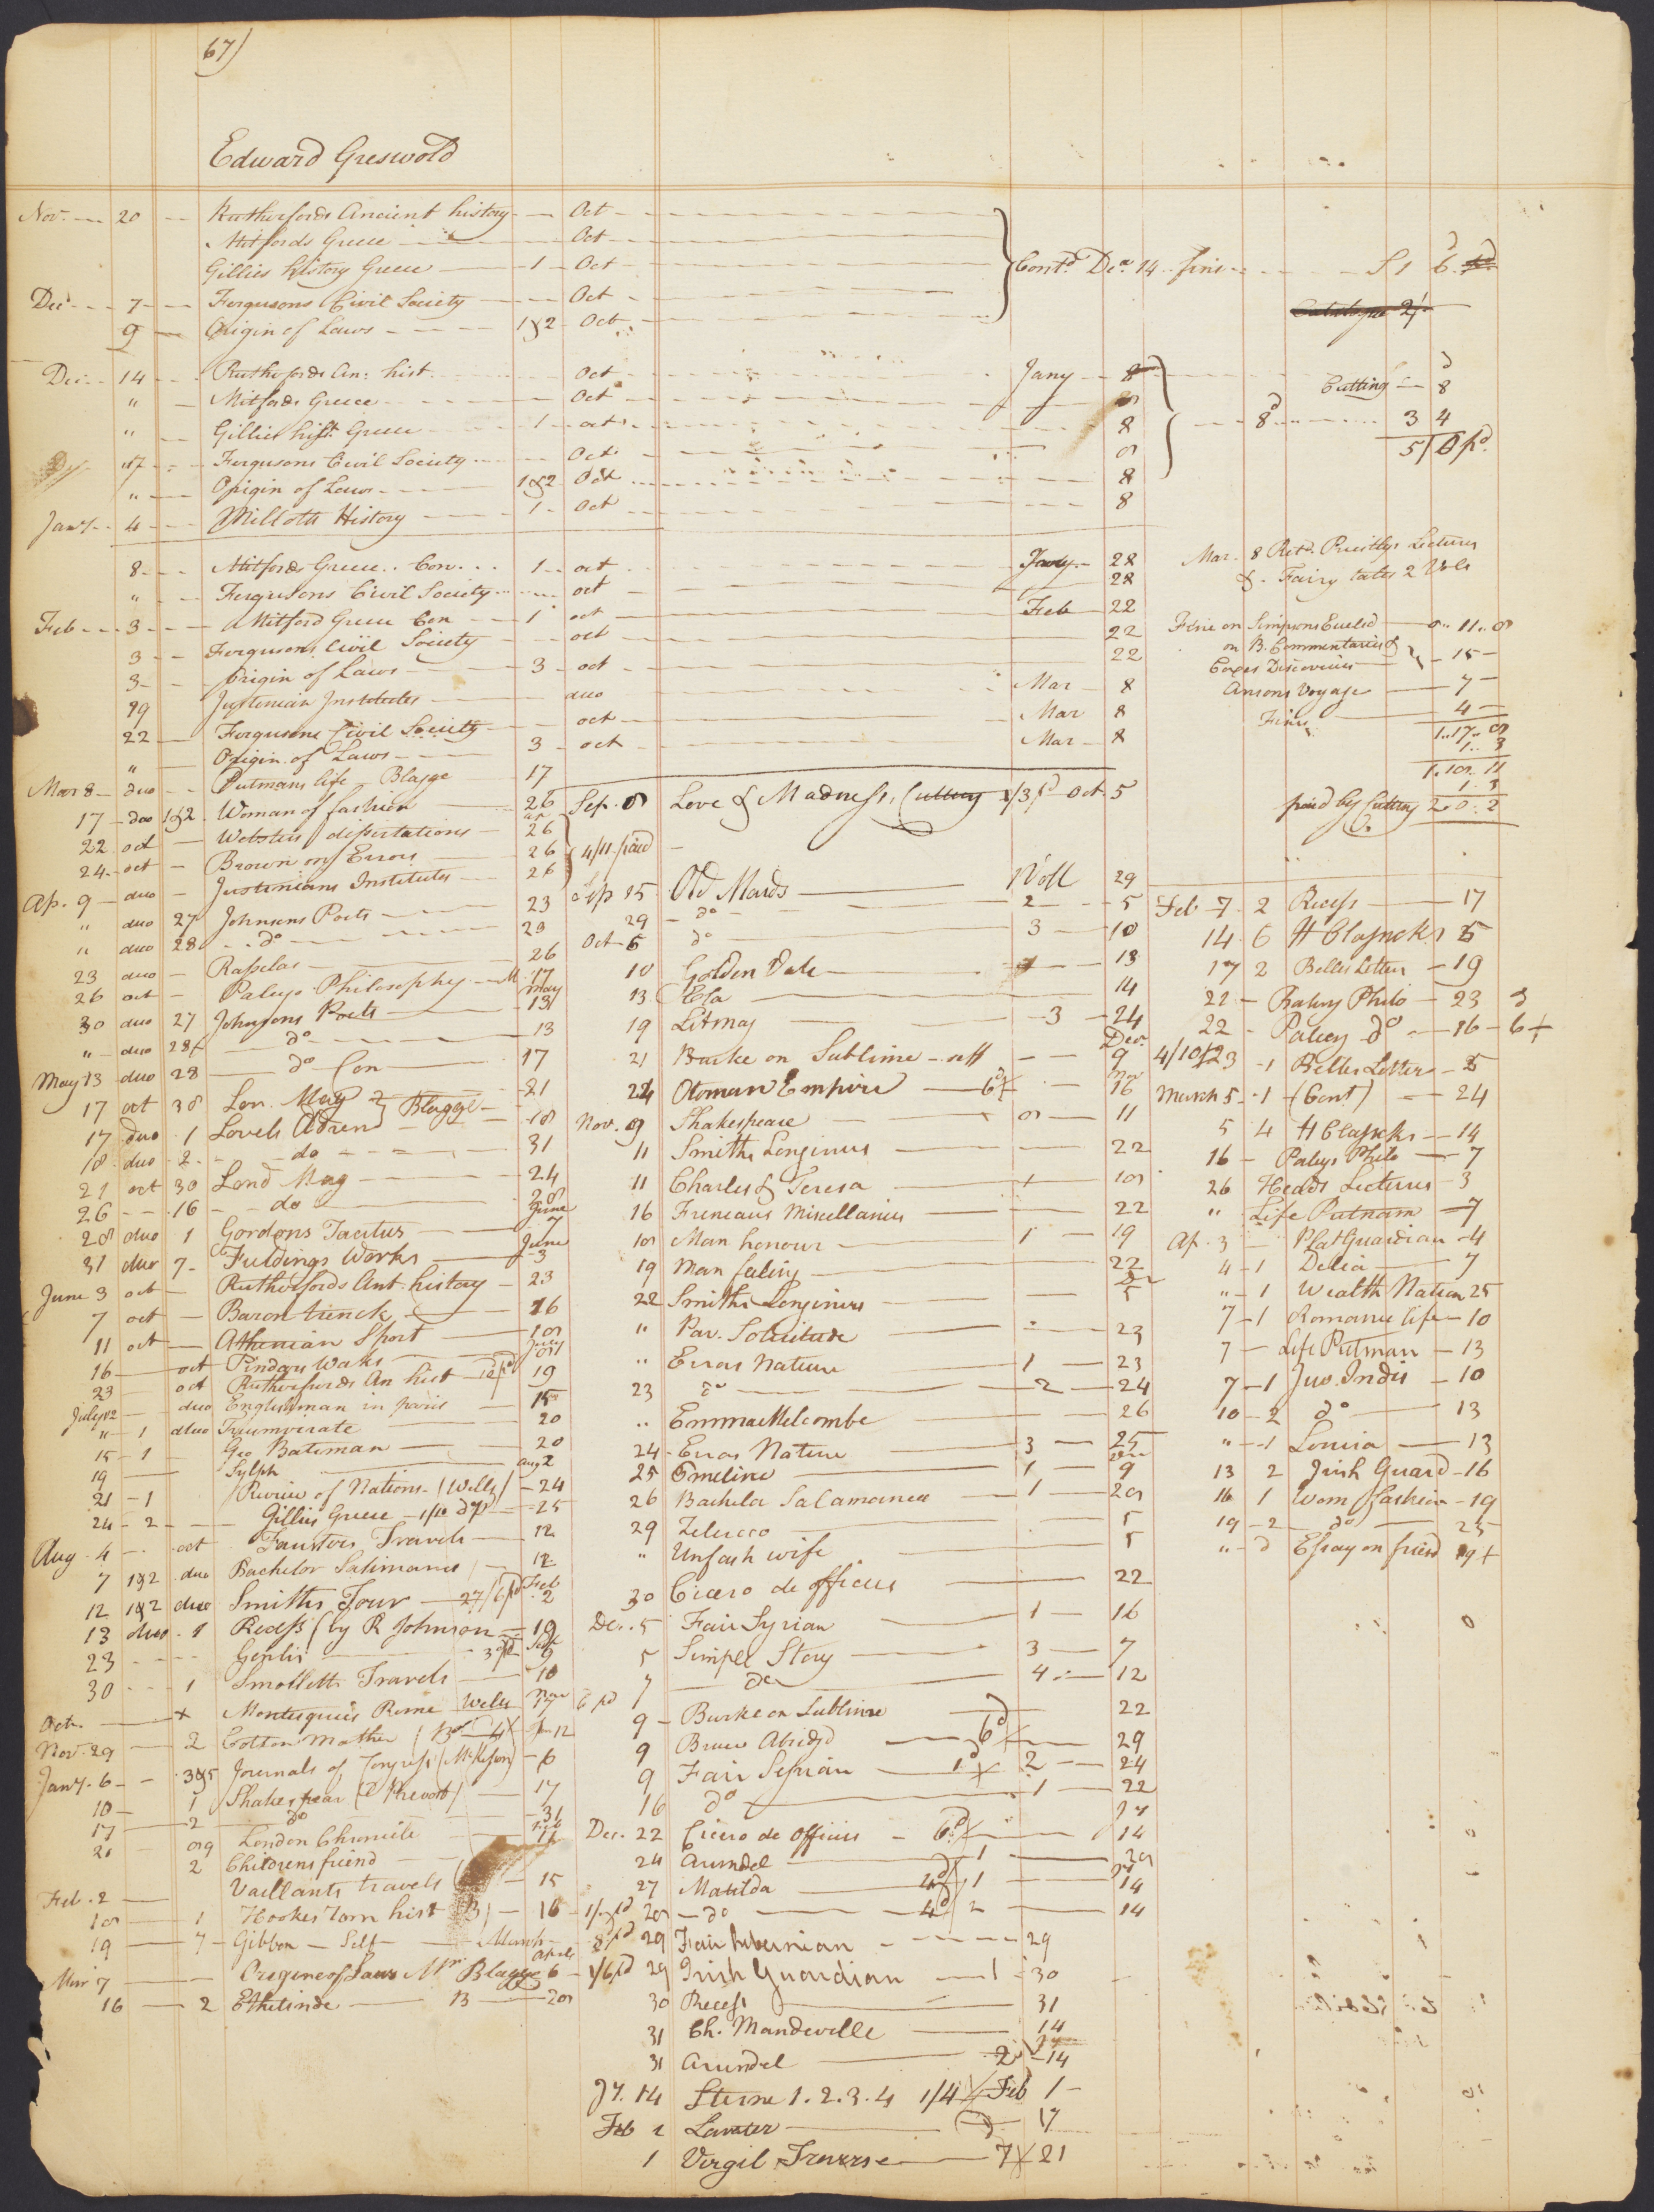 67)
Edward Greswold
Nov. 20 Rutherfords Ancient history Oct
Mitfords Greece Oct
Gillies history Greece 1 Oct
Dec 7 Fergusons Civil Society Oct
9 Origin of Laws 1&2 Oct
Contd Dec 14 fine 6
Dec 14 Rutherfords An: hist. Oct Jany 8
" Mitfords Greece Oct
" Gillies hist. Greece 1 oct 8
17 Fergusons Civil Society Oct
" Origin of Laws 1&2 Oct 8
Jany 4 Millotts History 1 Oct 8
Cutting 8
8d 3 4
8 Mitfords Greece Con 1 oct Jany 28
" Fergusons Civil Society oct 28
Feb 3 Mitford Greece Con 1 oct Feb 22
3 Fergusons Civil Society oct 22
3 Origin of Laws 3 oct 22
19 Justinian Institutes duo Mar 8
22 Fergusons Civil Society oct Mar 8
" Origin of Laws 3 oct Mar 8
Mar 8 duo Putmans life Blagge 17
17 duo 1&2 Woman of fashion 26
22 oct Websters dissertations 26
24 oct Brown on Errors 26
Ap. 9 duo Justinians Institutes 26
" duo 27 Johnsons Poets 23
" duo 28 do 23
23 duo Rasselas 26
26 oct Paleys Philosophy 17
30 duo 27 Johnsons Poets May 13
" duo 28 do 13
May 13 duo 28 do Con 17
17 oct 38 Lon. Mag 21
17 duo 1 Lovels Adven Blagge 18
18 duo 2 do 31
21 oct 30 Lond Mag 24
26 16 do 28
28 duo 1 Gordons Tacitus June 7
31 duo 7 Fieldings Works June 3
June 3 oct Rutherfords Ant history 23
7 oct Baron trenck 16
11 oct Athenian Sport
16 oct Pindars Works July
23 oct Rutherfords An hist 19
July 2 duo Englishman in paris 15
" 1 duo Triumvirate 20
15 1 Geo Bateman 20
19 Sylph Aug 2
21 1 Review of Nations (Wells) 24
24 2 Gillies Greece 25
Aug 4 oct Faustors Travels 12
7 1&2 duo Bachelor Salimanca 12
12 1&2 duo Smiths Tour Feb 2
13 duo 1 Recess (by R Johnson 19
23 Genlis 9
30 1 Smolletts Travels 10
Octr. Montesquieu Rome Wells 17
Nov. 29 2 Cotton Mather
Jany. 6 3&5 Journals of Congress (McKesson) 6
10 1 Shakespear (D Prevost) 17
17 2 do 31
21 London Chronicle
2 Childrens friend
Feb. 2 Vaillants travels 15
1 Hookes Rom hist 16
19 7 Gibbon Self March
Mar 7 Origine of Laws Mr Blagge 6
16 2 Ethelinde 13
Sep. 8 Love & Madness, Cutting 1/3 pd Oct. 5
4/11 paid
Sep 15 Old Maids 1 Voll 29
29 do 2 5
Oct 5 do 3 10
10 Golden Vale 13
13 Ela 14
19 Lit mag 3 24
21 Burke on Sublime self 9
24 Otoman Empire 6d 16
Nov. 9 Shakespeare 8 11
11 Smiths Longinus 22
11 Charles & Teresa
16 Freneaus Miscellanies 22
Man honour 1 19
19 Man feeling 22
22 Smiths Longinus 5
" Par. Solicitude 23
" Errors Nature 1 23
23 do 2 24
" Emma Melcombe 26
24 Erros Nature 3 25
25 Emeline 1 9
26 Bachelor Salamanca 1
29 Zeluco 5
" Unfash wife 5
30 Cicero de officiis 22
Dec. 5 Fair Syrian 1 16
5 Simple Story 3 7
7 do 4 12
9 Burke on Sublime 22
9 Bruce Abridgd 6d 29
9 Fair Syrian 2 24
16 do 1 22
Dec. 22 Cicero de Officiis 6d 14
24 Arundel 1
27 Matilda 4d 1 14
do 4d 2 14
29 Fair hibernian 29
29 Irish Guardian 1 30
30 Recess 31
31 Ch. Mandeville 14
31 Arundel 2 14
Jy. 14 Sterne 1.2.3.4 1/4 Feb 1
Feb 1 Lavater 17
1 Virgil Traverse 7 21
Mar. 8 Retd. Priestlys Lectures
& Fairy tales 2 Vols
Fine on Simpsons Euclid 11
on B. Commentaries &
Copes Discoveries 15
Ansons Voyage 7
Fines 4
1..17
1.. 3
1. 3
paid by Cutting 2.0.2
Feb 7 2 Recess 17
14 6 H Clasncks 5
17 2 Belles Letters 19
22 Palwy Philo 23
22 Paley do 16 6
23 1 Belles Letters 5
March 5 1 (Cont) 24
5 4 H Classicks 14
16 Paleys Philo 7
26 Hedds Lectures 3
" Life Putnam 7
Ap. 3 Plat Guardian 4
4 1 Delia 7
" 1 Wealth Nation 25
7 1 Romance life 10
7 Life Putman 13
7 1 Juv. Indis 10
10 2 do 13
" 1 Louisa 13
13 2 Irish Guard 16
16 1 Wom fashion 19
19 2 do 25
" Essay on friend 19